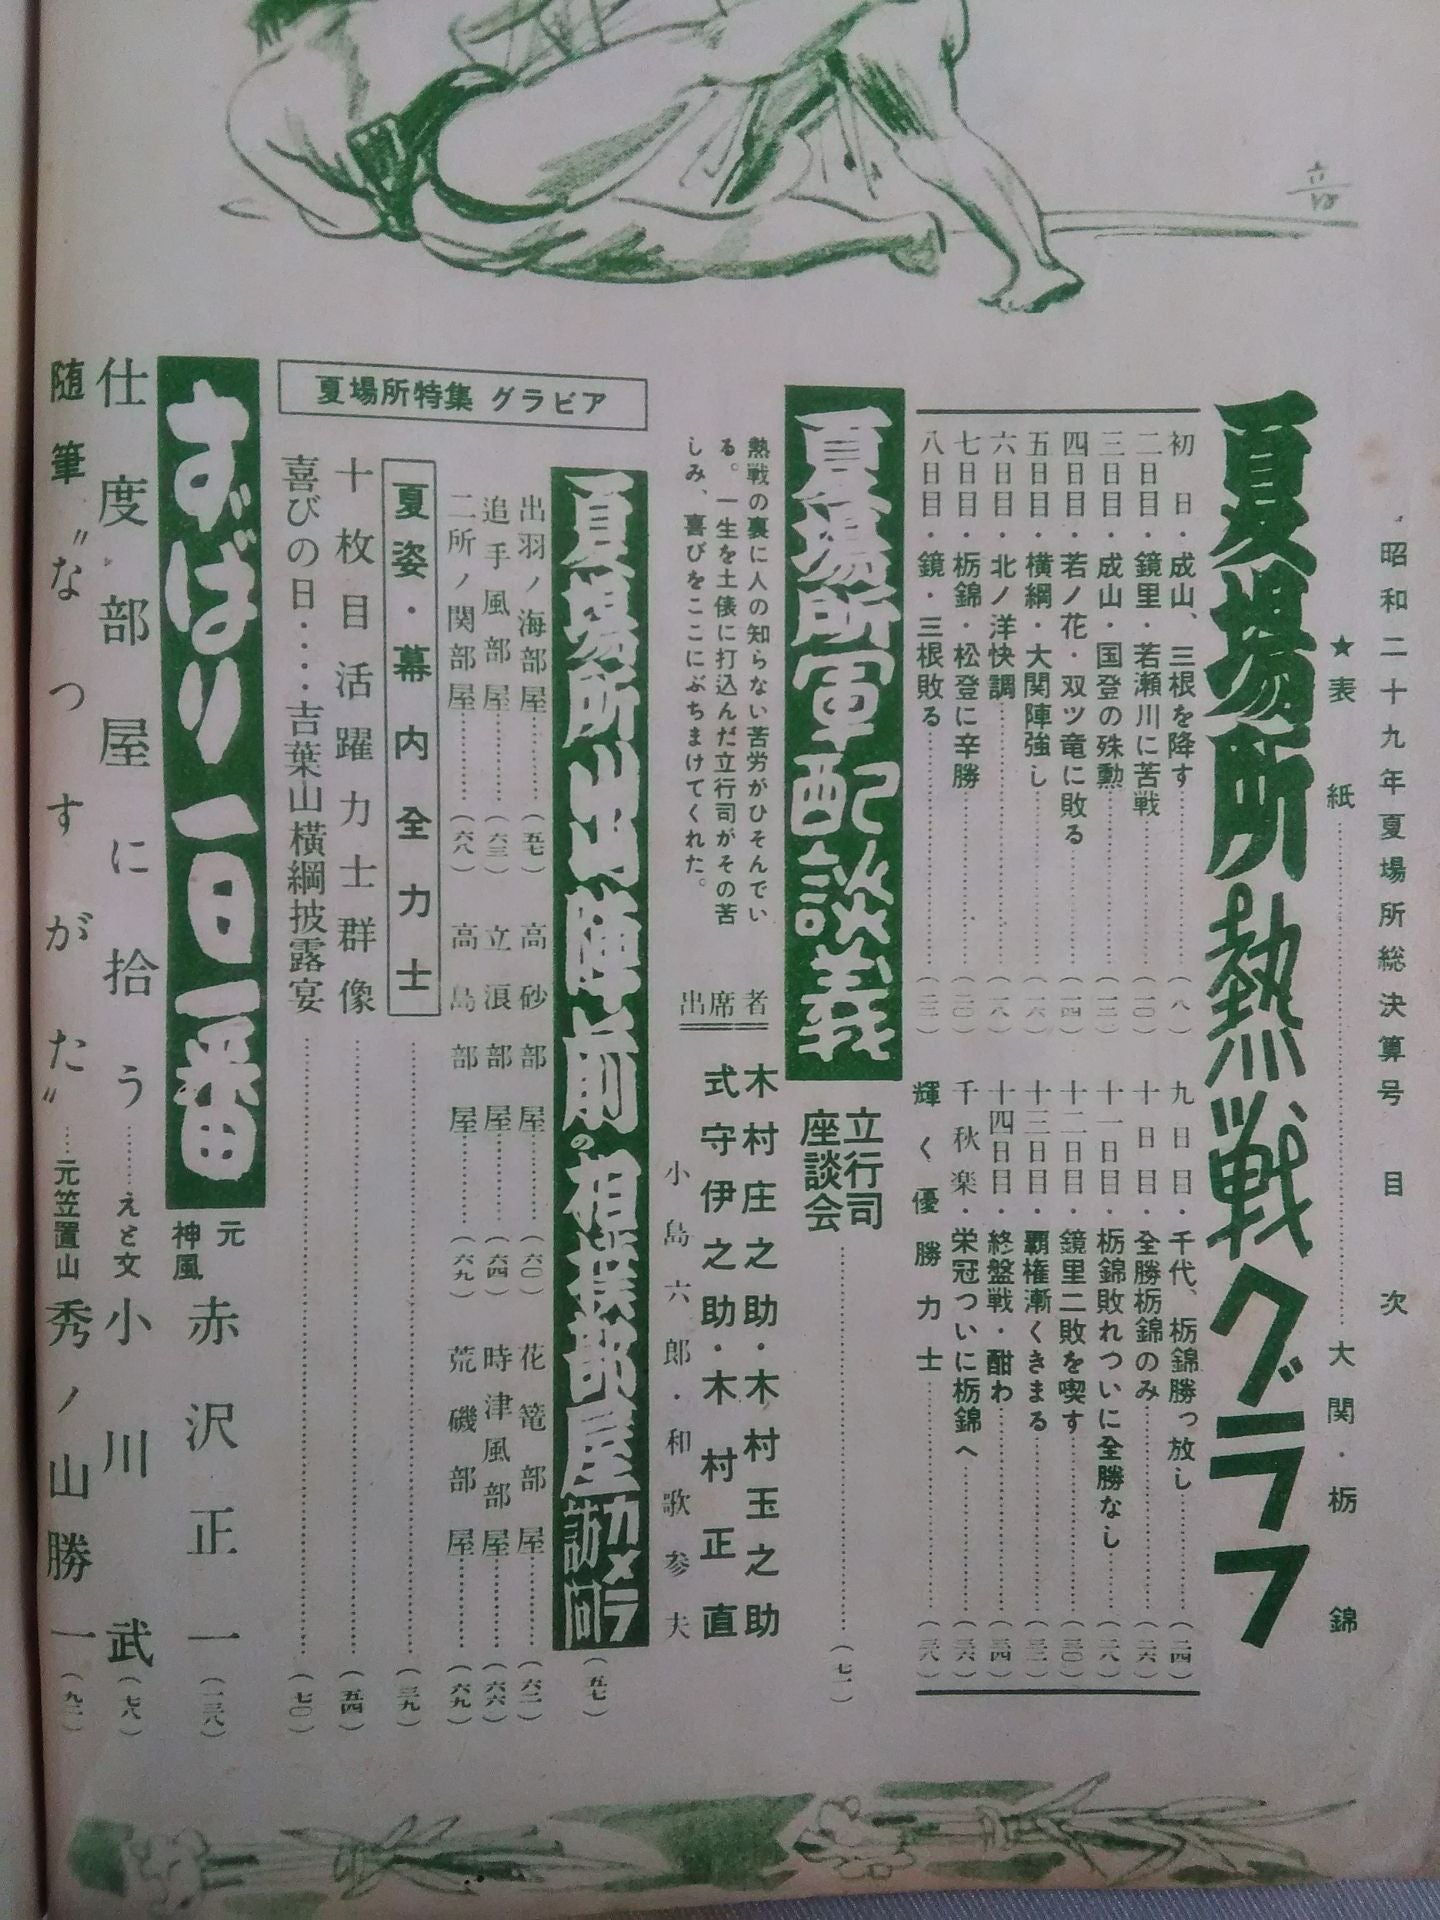 昭和二十九年夏場所総決算号 目次
★表紙…………大関・栃錦
夏場所熱戦グラフ
初日・成山、三根を降す…………(八)
二日目・鏡里・若瀬川に苦戦…………(一〇)
三日目・成山・国登の殊勲…………(一二)
四日目・若ノ花・双ツ竜に敗る…………(一四)
五日目・横綱・大関陣強し…………(一六)
六日目・北ノ洋快調…………(一八)
七日目・栃錦・松登に辛勝…………(二〇)
八日目・鏡・三根敗る…………(二二)
九日目・千代、栃錦勝っ放し…………(二四)
十日目・全勝栃錦のみ…………(二六)
十一日目・栃錦敗れついに全勝なし…………(二八)
十二日目・鏡里二敗を喫す…………(三〇)
十三日目・覇権漸くきまる…………(三二)
十四日目・終盤戦・酣わ…………(三四)
千秋楽・栄冠ついに栃錦へ…………(三六)
輝く優勝力士…………(三八)
夏場所軍配談義
立行司座談会…………(七一)
熱戦の裏に人の知らない苦労がひそんでい
る。一生を土俵に打込んだ立行司がその苦
しみ、喜びをここにぶちまけてくれた。
出席者
木村庄之助・木村玉之助
式守伊之助・木村正直
小島六郎・和歌参夫
夏場所出陣前の相撲部屋カメラ訪問…………(五七)
出羽ノ海部屋…………(五七)
高砂部屋…………(六〇)
花篭部屋…………(六二)
追手風部屋…………(六三)
立浪部屋…………(六四)
時津風部屋…………(六六)
二所ノ関部屋…………(六八)
高島部屋…………(六九)
荒磯部屋…………(六九)
夏場所特集 グラビア
夏姿・幕内全力士…………(三九)
十枚目活躍力士群像…………(五四)
喜びの日・・・・吉葉山横綱披露宴…………(七〇)
ずばり一日一番
元神風 赤沢正一(一三八)
仕度部屋に拾う……えと文 小川武(七八)
随筆〝なつすがた〟……元笠置山 秀ノ山勝一(九二)